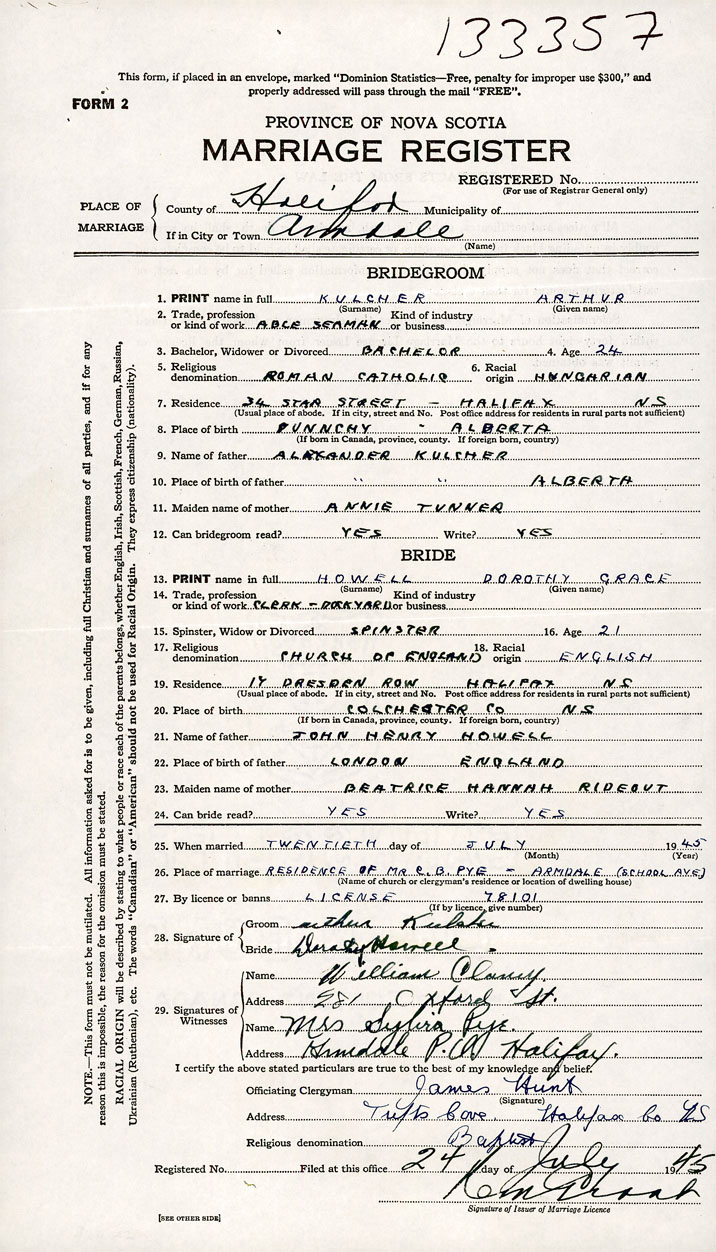 133357
This form, if placed in an envelope, marked "Dominion Statistics—Free, penalty for improper use $300," and
properly addressed will pass through the mail "FREE".
FORM 2
PROVINCE OF NOVA SCOTIA
MARRIAGE REGISTER
REGISTERED No.
(For use of Registrar General only)
PLACE OF MARRIAGE
County of Halifax Municipality of
If in City or Town Armdale
(Name)
BRIDEGROOM
1. PRINT name in full KULCHER ARTHUR
(Surname) (Given name)
2. Trade, profession Kind of industry
or kind of work ABLE SEAMAN or business
3. Bachelor, Widower or Divorced BACHELOR 4. Age 24
5. Religious 6. Racial
denomination ROMAN CATHOLIC origin HUNGARIAN
7. Residence 34 STAR STREET - HALIFAX NS
(Usual place of abode. If in city, street and No. Post office address for residents in rural parts not sufficient)
8. Place of birth PUNNCHY - ALBERTA
(If born in Canada, province, county. If foreign born, country)
9. Name of father ALEXANDER KULCHER
10. Place of birth of father " " ALBERTA
11. Maiden name of mother ANNIE TUNNER
12. Can bridegroom read? YES Write? YES
BRIDE
13. PRINT name in full HOWELL DOROTHY GRACE
(Surname) (Given name)
14. Trade, profession Kind of industry
or kind of work CLERK - DOCKYARD or business
15. Spinster, Widow or Divorced SPINSTER 16. Age 21
17. Religious 18. Racial
denomination CHURCH OF ENGLAND origin ENGLISH
19. Residence 17 DRESDEN ROW HALIFAX NS
(Usual place of abode. If in city, street and No. Post office address for residents in rural parts not sufficient)
20. Place of birth COLCHESTER CO NS
(If born in Canada, province, county. If foreign born, country)
21. Name of father JOHN HENRY HOWELL
22. Place of birth of father LONDON ENGLAND
23. Maiden name of mother BEATRICE HANNAH RIDEOUT
24. Can bride read? YES Write? YES
25. When married TWENTIETH day of JULY 1945
(Month) (Year)
26. Place of marriage RESIDENCE OF MR C.B. PYE - ARMDALE (SCHOOL AVE)
(Name of church or clergyman's residence or location of dwelling house)
27. By licence or banns LICENSE 78101
(If by licence, give number)
28. Signature of
Groom Arthur Kulcher
Bride Dorothy Howell
29. Signatures of Witnesses
Name William Clancy
Address 581 Oxford St.
Name Mrs Sylvia Pye.
Address Armdale P.O. Halifax.
I certify the above stated particulars are true to the best of my knowledge and belief.
Officiating Clergyman James Hunt
(Signature)
Address Tufts Cove Halifax Co NS
Religious denomination Baptist
Registered No. Filed at this office 24 day of July 1945
Signature of Issuer of Marriage Licence
[SEE OTHER SIDE]
NOTE.—This form must not be mutilated. All information asked for is to be given, including full Christian and surnames of all parties, and if for any
reason this is impossible, the reason for the omission must be stated.
RACIAL ORIGIN will be described by stating to what people or race each of the parents belongs, whether English, Irish, Scottish, French, German, Russian,
Ukrainian (Ruthenian), etc. The words "Canadian" or "American" should not be used for Racial Origin. They express citizenship (nationality).